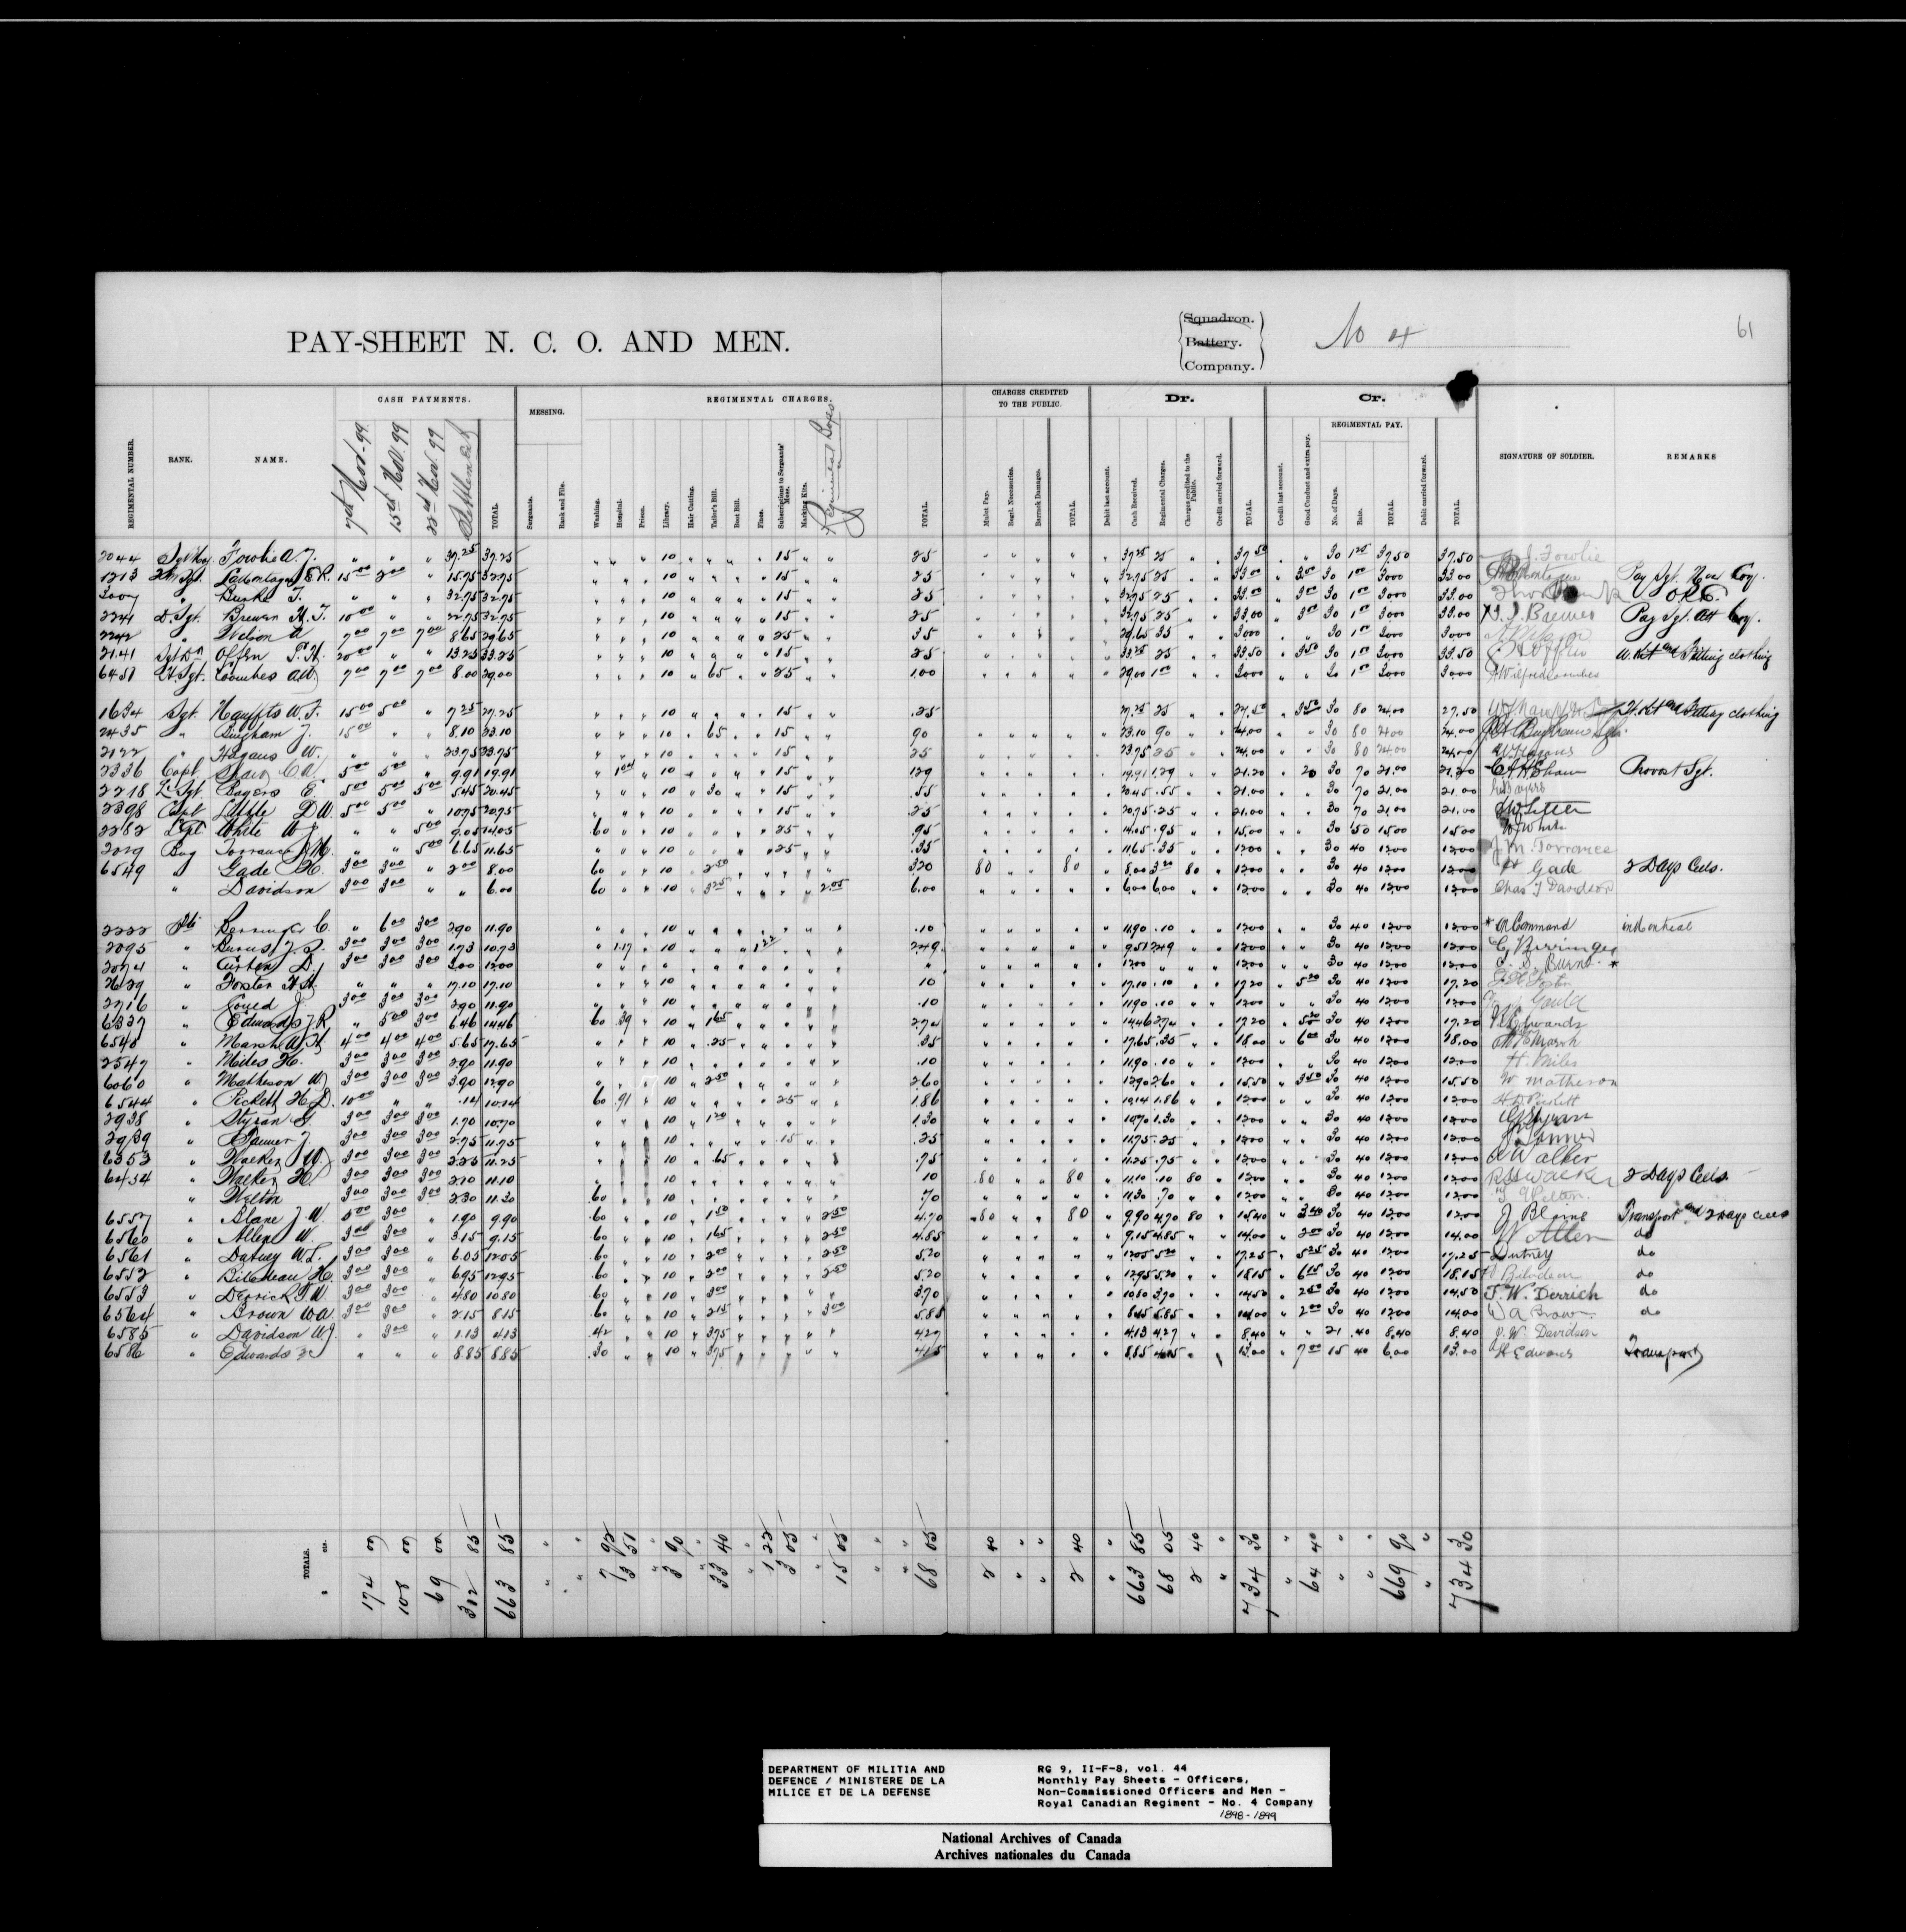 PAY-SHEET N. C. O. AND MEN.
Squadron.
Battery.
Company.
No 4
61
CASH PAYMENTS.
MESSING.
REGIMENTAL CHARGES.
CHARGES CREDITED
TO THE PUBLIC.
Dr.
Cr.
REGIMENTAL PAY.
REGIMENTAL NUMBER.
RANK.
NAME.
7th Nov. 99
15th Nov. 99
22nd Nov. 99
Settlement
TOTAL
Sergeants.
Rank and File.
Washing.
Hospital.
Prison.
Library.
Hair Cutting.
Tailor's Bill.
Boot Bill.
Fines.
Subscriptions to Sergeants' Mess.
Marking Kits.
Regimental
TOTAL
Mulct Pay.
Regtl. Necessaries.
Barrack Damages.
TOTAL
Debit last account.
Cash Received.
Regimental Charges.
Charges credited to the Public.
Credit carried forward.
TOTAL
Credit last account.
Good Conduct and extra pay.
No. of Days.
Rate.
TOTAL
Debit carried forward.
TOTAL
SIGNATURE OF SOLDIER.
REMARKS
2044 Sgt Maj Fowlie A J. " " " 37.25 37.25 10 15 25 37.25 25 37.50 " 30 1.25 37.50 37.50 Fowlie
1213 15.00 2.00 " 15.75 32.75 10 15 25 32.75 25 33.00 3.00 30 1.00 30.00 33.00 Pay Sgt.
Burke T. " " " 32.75 32.75 10 15 25 32.75 25 33.00 3.00 30 1.00 30.00 33.00
2241 D. Sgt. Brewer H. J. 10.00 " " 22.75 32.75 10 15 25 32.75 25 33.00 3.00 30 1.00 30.00 33.00 Pay Sgt. Att Coy.
2242 " Nelson A 7.00 7.00 7.00 8.65 29.65 10 25 35 29.65 35 30.00 " 30 1.00 30.00 30.00
2141 Offen 20.00 " " 13.25 33.25 10 15 25 33.25 25 33.50 3.50 30 1.00 30.00 33.50 Fitting clothing
6451 Sgt. Coombes A W 7.00 7.00 7.00 8.00 29.00 10 65 25 1.00 29.00 1.00 30.00 " 30 1.00 30.00 30.00
1634 Sgt. W. F. 15.00 5.00 " 7.25 27.25 10 15 .25 27.25 25 27.50 3.50 30 80 24.00 27.50 Fitting clothing
2435 " Bingham J. 15.00 " " 8.10 23.10 10 65 15 90 23.10 90 24.00 " 30 80 24.00 24.00
2122 " Hagans W. " " " 23.75 23.75 10 15 25 23.75 25 24.00 " 30 80 24.00 24.00
2336 Corpl Shaw C A 5.00 5.00 " 9.91 19.91 1.04 10 15 1.29 19.91 1.29 21.20 20 30 70 21.00 21.20 C A H Shaw Provost Sgt.
2218 L Sgt. Rogers E. 5.00 5.00 5.00 5.45 20.45 10 30 15 .55 20.45 .55 21.00 " 30 70 21.00 21.00
2398 Corpl Little D W. 5.00 5.00 " 10.75 20.75 10 15 .25 20.75 .25 21.00 " 30 70 21.00 21.00
2282 White W J " " 5.00 9.05 14.05 60 10 25 .95 14.05 .95 15.00 " 30 50 15.00 15.00 W J White
2029 Bug Torrance J M. " " 5.00 6.65 11.65 10 25 .35 11.65 .35 12.00 " 30 40 12.00 12.00 J. M. Torrance
6549 " Gade H. 3.00 3.00 " 2.00 8.00 60 10 2.50 3.20 80 80 8.00 3.20 80 12.00 " 30 40 12.00 12.00 H Gade 2 Days Cells.
" Davidson 3.00 3.00 " " 6.00 60 10 3.25 2.05 6.00 6.00 6.00 12.00 " 30 40 12.00 12.00 Chas J Davidson
2222 Pte Berringer C. " 6.00 3.00 2.90 11.90 10 .10 11.90 .10 12.00 " 30 40 12.00 12.00 * On Command in Montreal
2095 " Burns J. S. 3.00 3.00 3.00 1.73 10.73 1.17 10 1.22 2.49 9.51 2.49 12.00 " 30 40 12.00 12.00 C Berringer
2074 " D. 3.00 3.00 3.00 3.00 12.00 " 12.00 " 12.00 " 30 40 12.00 12.00 Burns *
2629 " Foster H A " " " 17.10 17.10 10 10 17.10 .10 17.20 5.20 30 40 12.00 17.20
2716 " Gould J 3.00 3.00 3.00 2.90 11.90 10 .10 11.90 .10 12.00 " 30 40 12.00 12.00 Gould
6337 " Edwards J R " 5.00 3.00 6.46 14.46 60 .39 10 1.65 2.74 14.46 2.74 17.20 5.20 30 40 12.00 17.20 Edwards
6540 " Marsh A H 4.00 4.00 4.00 5.65 17.65 10 .25 .35 17.65 .35 18.00 6.00 30 40 12.00 18.00 Marsh
2547 " Miles H. 3.00 3.00 3.00 2.90 11.90 10 .10 11.90 .10 12.00 " 30 40 12.00 12.00 H. Miles
6060 " Matheson W 3.00 3.00 3.00 3.90 12.90 10 2.50 2.60 12.90 2.60 15.50 3.50 30 40 12.00 15.50 W Matheson
6544 " Pickett H D. 10.00 " " .14 10.14 60 .91 10 25 1.86 10.14 1.86 12.00 " 30 40 12.00 12.00 H D Pickett
2938 " Styran G. 3.00 3.00 3.00 1.70 10.70 10 1.20 1.30 10.70 1.30 12.00 " 30 40 12.00 12.00
2939 " Tanner J. 3.00 3.00 3.00 2.75 11.75 10 .15 .25 11.75 .25 12.00 " 30 40 12.00 12.00 J Tanner
6353 " Walker W 3.00 3.00 3.00 2.25 11.25 10 .65 .75 11.25 .75 12.00 " 30 40 12.00 12.00 W Walker
6454 " Walker H. 3.00 3.00 3.00 2.10 11.10 10 10 .80 80 11.10 .10 80 12.00 " 30 40 12.00 12.00 Walker 2 Days Cells.
" Welton 3.00 3.00 3.00 2.30 11.30 .60 10 .70 11.30 .70 12.00 " 30 40 12.00 12.00
6557 " Blane J. W. 5.00 3.00 " 1.90 9.90 60 10 1.50 2.50 4.70 .80 80 9.90 4.70 80 15.40 3.40 30 40 12.00 12.00 J Blane Transport and 2 Days Cells
6560 " Allen W. 3.00 3.00 " 3.15 9.15 60 10 1.65 2.50 4.85 9.15 4.85 14.00 2.00 30 40 12.00 14.00 W Allen do
6561 " Datney W. 3.00 3.00 " 6.05 12.05 60 10 2.00 2.50 5.20 12.05 5.20 17.25 5.25 30 40 12.00 17.25 do
6552 " Bilodeau H. 3.00 3.00 " 6.95 12.95 .60 10 2.00 2.50 5.20 12.95 5.20 18.15 6.15 30 40 12.00 18.15 Bilodeau do
6553 " Derrick T. W. 3.00 3.00 " 4.80 10.80 .60 10 3.00 3.70 10.80 3.70 14.50 2.50 30 40 12.00 14.50 T. W. Derrick do
6564 " Brown W A. 3.00 3.00 " 2.15 8.15 60 10 2.15 3.00 5.85 8.15 5.85 14.00 2.00 30 40 12.00 14.00 W A Brown do
6585 " Davidson W J. " 3.00 " 1.13 4.13 .42 10 3.75 4.27 4.13 4.27 8.40 " 21 .40 8.40 8.40 J. W. Davidson
6586 " Edwards " " " 8.85 8.85 .30 10 3.75 4.15 8.85 4.15 13.00 7.00 15 40 6.00 13.00 H Edwards Transport
TOTALS. $ cts.
174 00 108 00 69 00 312 85 663 85 7 92 3 51 3 90 33 40 1 22 3 05 15 05 68 05 2 40 2 40 663 85 68 05 2 40 734 30 64 40 669 90 734 30
DEPARTMENT OF MILITIA AND
DEFENCE / MINISTERE DE LA
MILICE ET DE LA DEFENSE
RG 9, II-F-8, vol. 44
Monthly Pay Sheets - Officers,
Non-Commissioned Officers and Men -
Royal Canadian Regiment - No. 4 Company
1898-1899
National Archives of Canada
Archives nationales du Canada